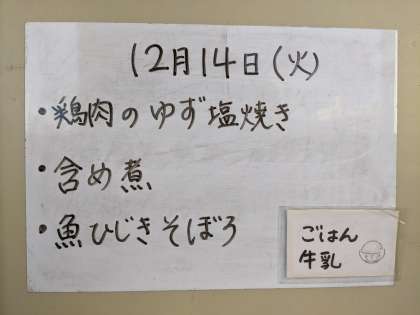 12月14日(火)
・鶏肉のゆず塩焼き
・含め煮
・魚ひじきそぼろ
ごはん
牛乳